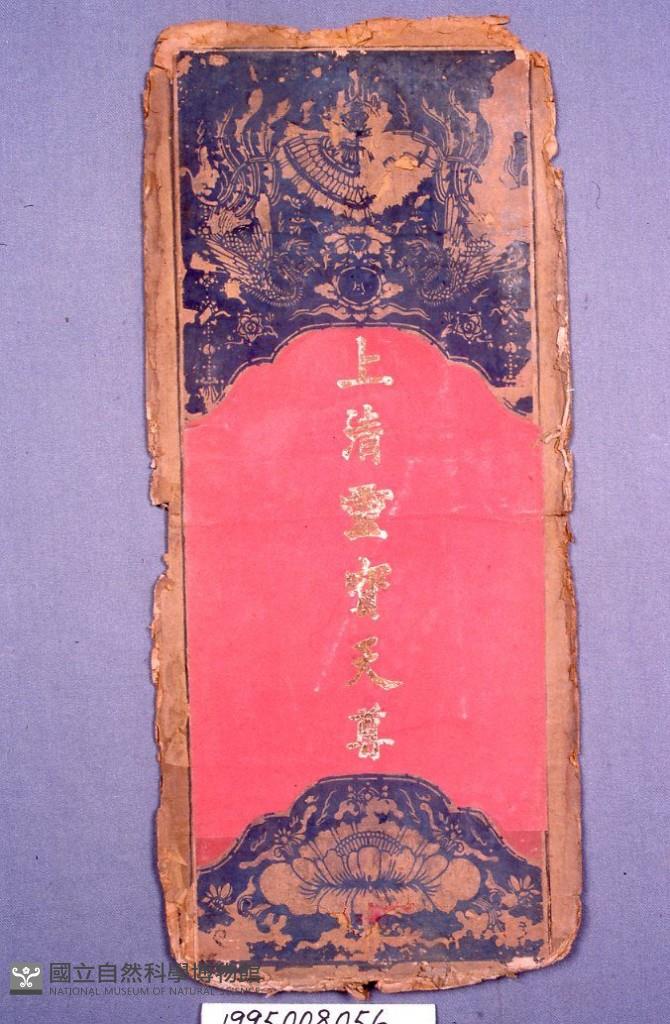 上清靈寶天尊
國立自然科學博物館
NATIONAL MUSEUM OF NATURAL SCIENCE
1995008056